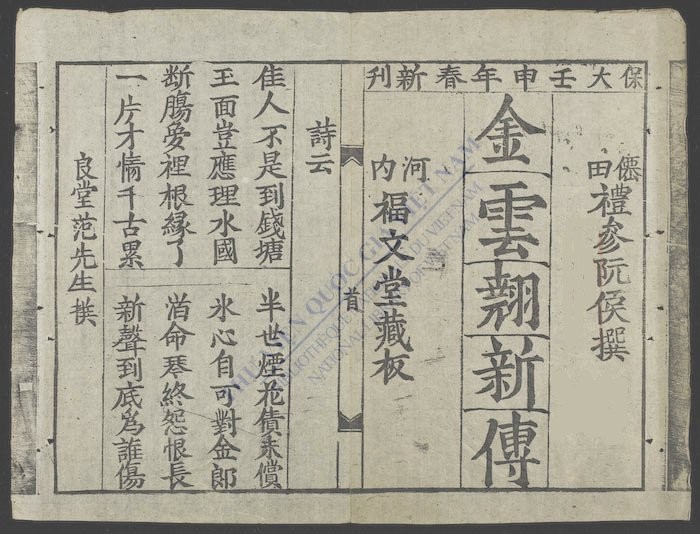 保大壬申年春新刊
僊田禮參阮侯撰
金雲翹新傳
河內福文堂藏板
首
詩云
佳人不是到錢塘 半世煙花債未償
玉面豈應埋水國 氷心自可對金郎
断腸夢裡根緣了 命琴終怨恨長
一片才情千古累 新聲到底為誰傷
良堂范先生撰
THƯ VIỆN QUỐC GIA VIỆT NAM
BIBLIOTHÈQUE NATIONALE DU VIETNAM
NATIONAL LIBRARY OF VIETNAM